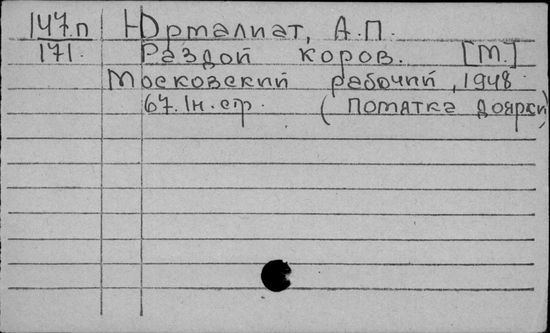 147.п Юрталиат, А.П.
171. Раздой коров. [М.]
Московский рабочий, 1948
67.1н.стр. (Помятка доярки)